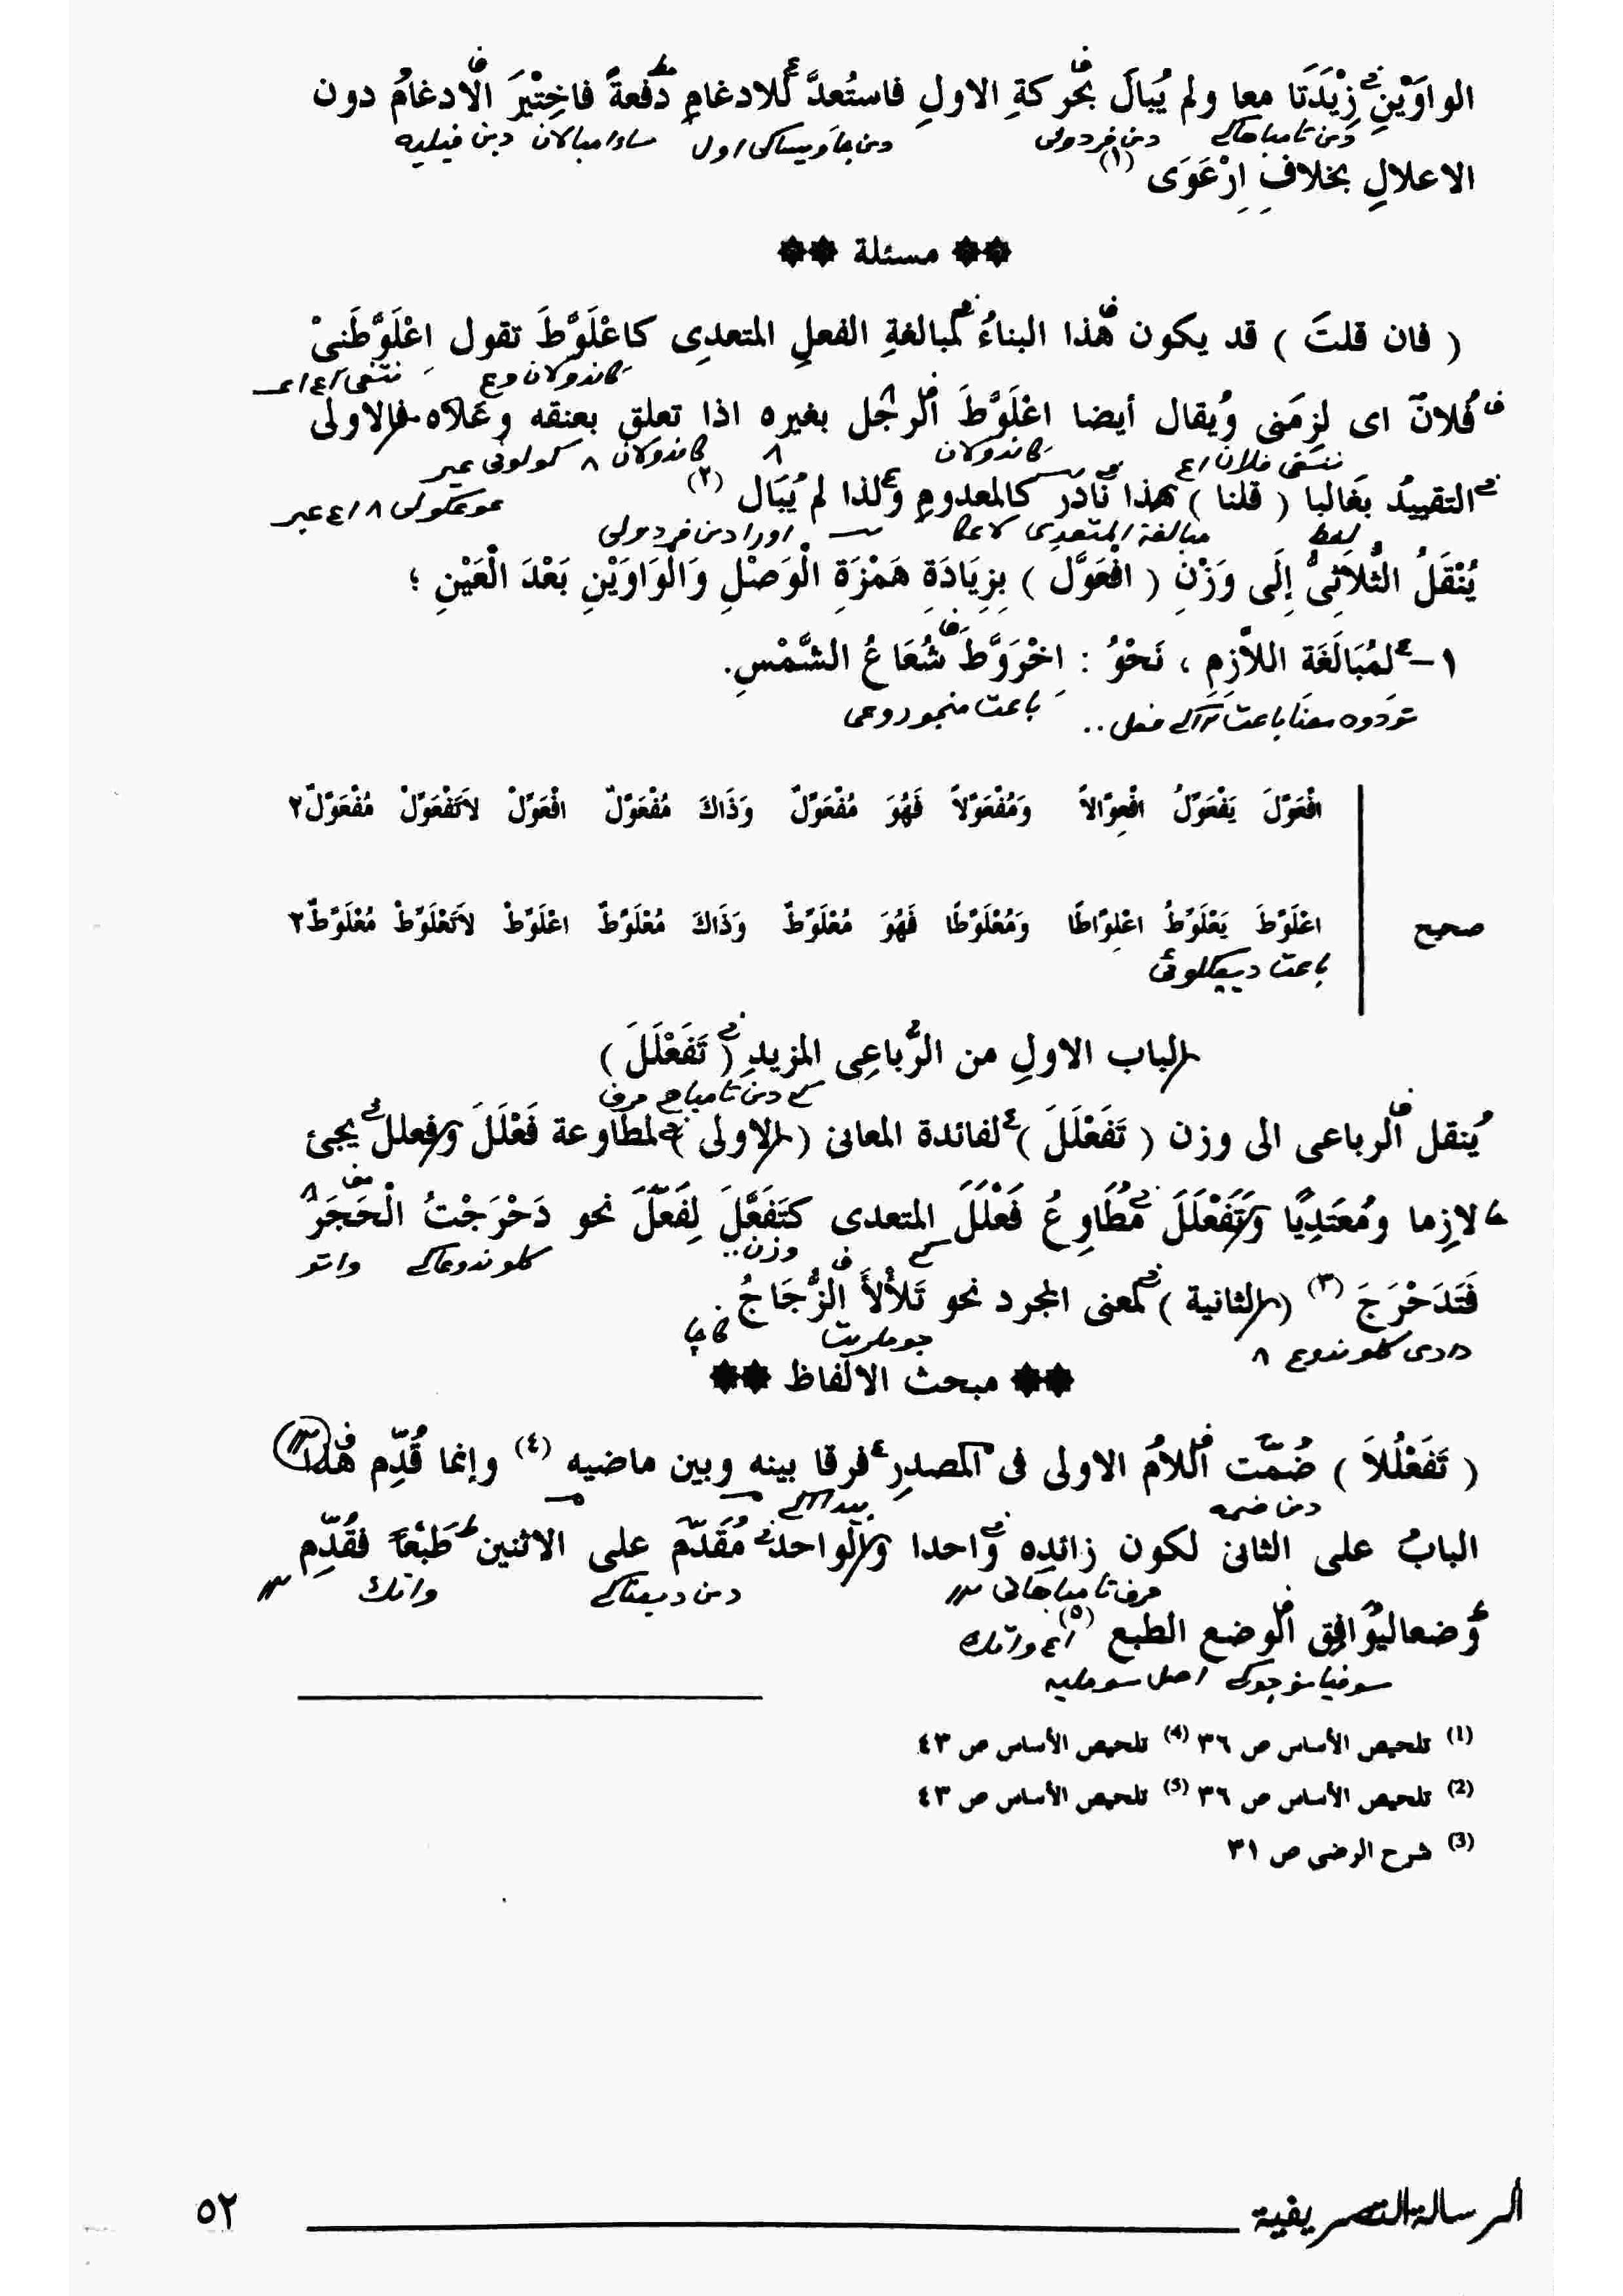 الواوَيْنِ زِيْدَتَا معا ولم يُبالَ بحَركةِ الاولِ فاستُعدَّ للادغامِ دفعةً فاخِتْيرَ الادغامُ دون
دين تامباهاكي دين فردولي
الاعلالِ بخلافِ اِرْعَوَى (١)
** مسئلة **
( فان قلتَ ) قد يكون هذا البناءُ لمبالغةِ الفعلِ المتعدِى كاعْلَوَّطَ تقول اعْلَوَّطَنِىْ
كاندولان
فُلانٌ اى لزِمَنى ويُقال أيضا اعْلَوَّطَ الرجُل بغيره اذا تعلق بعنقه وعَلاه فالاولى
فلان كاندولان كاندولان
التقييدُ بغَالبا ( قلنا ) هذا نادر كالمعدومِ ولذا لم يُبَال (٢)
لفظ مبالغة المتعدى اورا دين فردولي
يُنْقَلُ الثُّلَاثِىُّ إِلَى وَزْنِ ( افْعَوَّلَ ) بِزِيَادَةِ هَمْزَةِ الْوَصْلِ وَالْوَاوَيْنِ بَعْدَ الْعَيْنِ ؛
١- لمُبَالَغَة اللاَّزِمِ ، نَحْوُ : اِخْرَوَّطَ شُعَاعُ الشَّمْسِ.
افْعَوَّلَ يَفْعَوِّلُ افْعِوَّالاً وَمُفْعَوَّلاً فَهُوَ مُفْعَوِّلٌ وَذَاكَ مُفْعَوَّلٌ افْعَوِّلْ لاَتَفْعَوِّلْ مُفْعَوَّلٌ٢
صحيح اعْلَوَّطَ يَعْلَوِّطُ اعْلِوَّاطًا وَمُعْلَوَّطًا فَهُوَ مُعْلَوِّطٌ وَذَاكَ مُعْلَوَّطٌ اعْلَوِّطْ لاَتَعْلَوِّطْ مُعْلَوَّطٌ٢
الباب الاولِ من الرُّباعِى المزيدِ ( تَفَعْلَلَ )
دين تامباهي حرف
يُنقل الرباعى الى وزن ( تَفَعْلَلَ ) لفائدة المعانى ( الاولى ) لمطاوعة فَعْلَلَ وفعلل يجئ
لازِما ومُعتَدِيًا وتَفَعْلَلَ مُطَاوِعُ فَعْلَلَ المتعدى كتَفَعَّلَ لِفَعَّلَ نحو دَحْرَجْتُ الْحَجَرَ
وزن كلوندوعاكي واتو
فَتَدَحْرَجَ (٣) ( الثانية ) لمعنى المجرد نحو تَلأْلأَ الزُّجَاجُ
** مبحث الالفاظ **
( تَفَعْلُلاَ ) ضُمّت اللامُ الاولى فى المصدرِ فرقا بينه وبين ماضيه (٤) وإنما قُدِّم هذا
دين ضمه
البابُ على الثانى لكون زائدِه واحدا والواحد مُقَدَّم على الاثنين طَبْعًا فقُدِّم
وضعاليُوافِق الوضع الطبع (٥)
(1) تلحيص الأساس ص ٣٦ (4) تلحيص الأساس ص ٤٣
(2) تلحيص الأساس ص ٣٦ (5) تلحيص الأساس ص ٤٣
(3) شرح الرضى ص ٣١
الرسالة التصريفية ٥٢